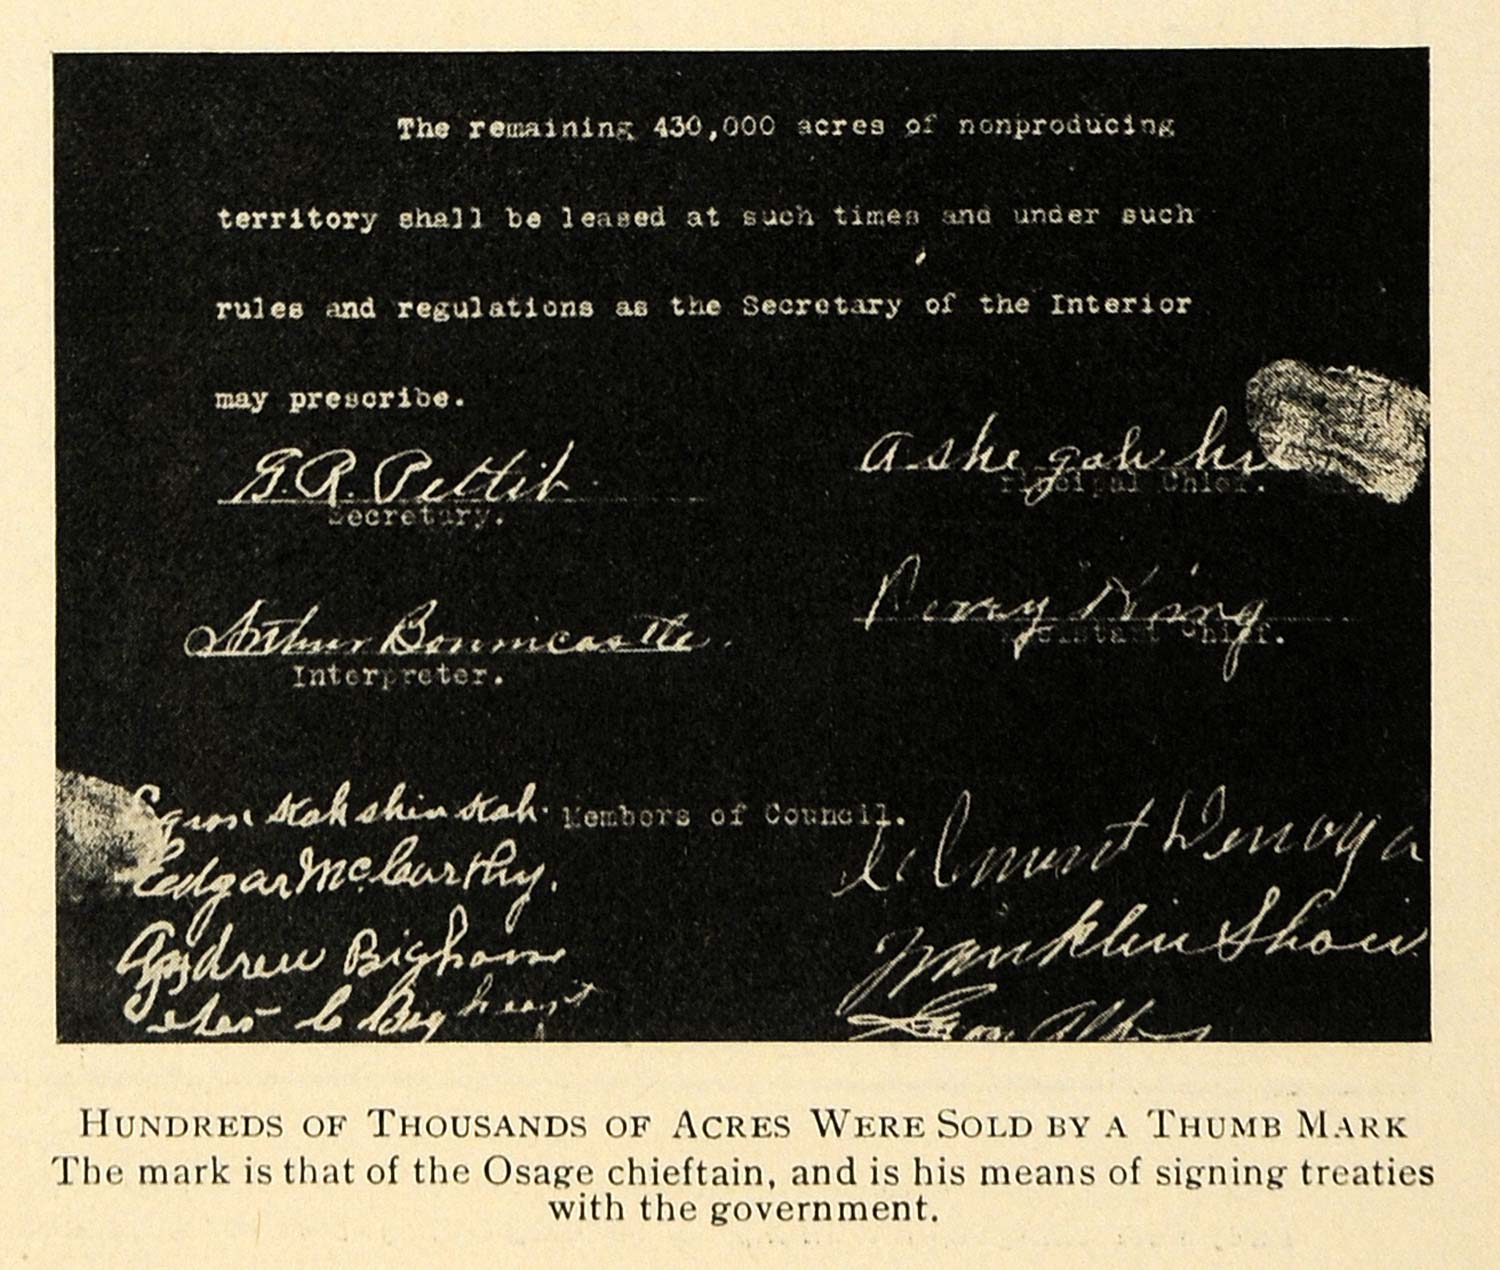 The remaining 430,000 acres of nonproducing
territory shall be leased at such times and under such
rules and regulations as the Secretary of the Interior
may prescribe.
G. R. Pettit
Secretary.
A she gah hre
Principal Chief.
Arthur Bonnicastle.
Interpreter.
Perry King
Assistant Chief.
Members of Council.
Kah shin kah
Edgar McCarthy.
Andrew Bighorse
Chas C Bigheart
Clement Denoya
Franklin Shaw
HUNDREDS OF THOUSANDS OF ACRES WERE SOLD BY A THUMB MARK
The mark is that of the Osage chieftain, and is his means of signing treaties
with the government.